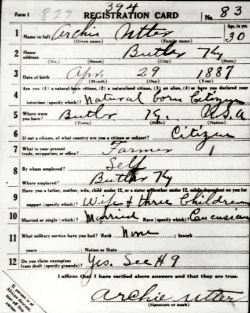 Form 1
394
REGISTRATION CARD
No. 83
Age, in yrs.
1 Name in full Archie Utter 30
(Given name) (Family name)
2 Home address Butler Ky
(No.) (Street) (City) (State)
3 Date of birth Apr. 29 1887
(Month) (Day) (Year)
4 Are you (1) a natural born citizen, (2) a naturalized citizen, (3) an alien, (4) or have you declared your
intention (specify which)? Natural born Citizen
5 Where were you born? Butler Ky. U.S.A
(Town) (State) (Nation)
6 If not a citizen, of what country are you a citizen or subject? Citizen
7 What is your present trade, occupation, or office? Farmer 1
8 By whom employed? Self
Where employed? Butler Ky
9 Have you a father, mother, wife, child under 12, or a sister or brother under 12, solely dependent on you for
support (specify which)? Wife & three Children
10 Married or single (which)? Married Race (specify which)? Caucasian
11 What military service have you had? Rank None
years Nation or State
12 Do you claim exemption from draft (specify grounds)? Yes. See #9
I affirm that I have verified above answers and that they are true.
Archie Utter
(Signature or mark)